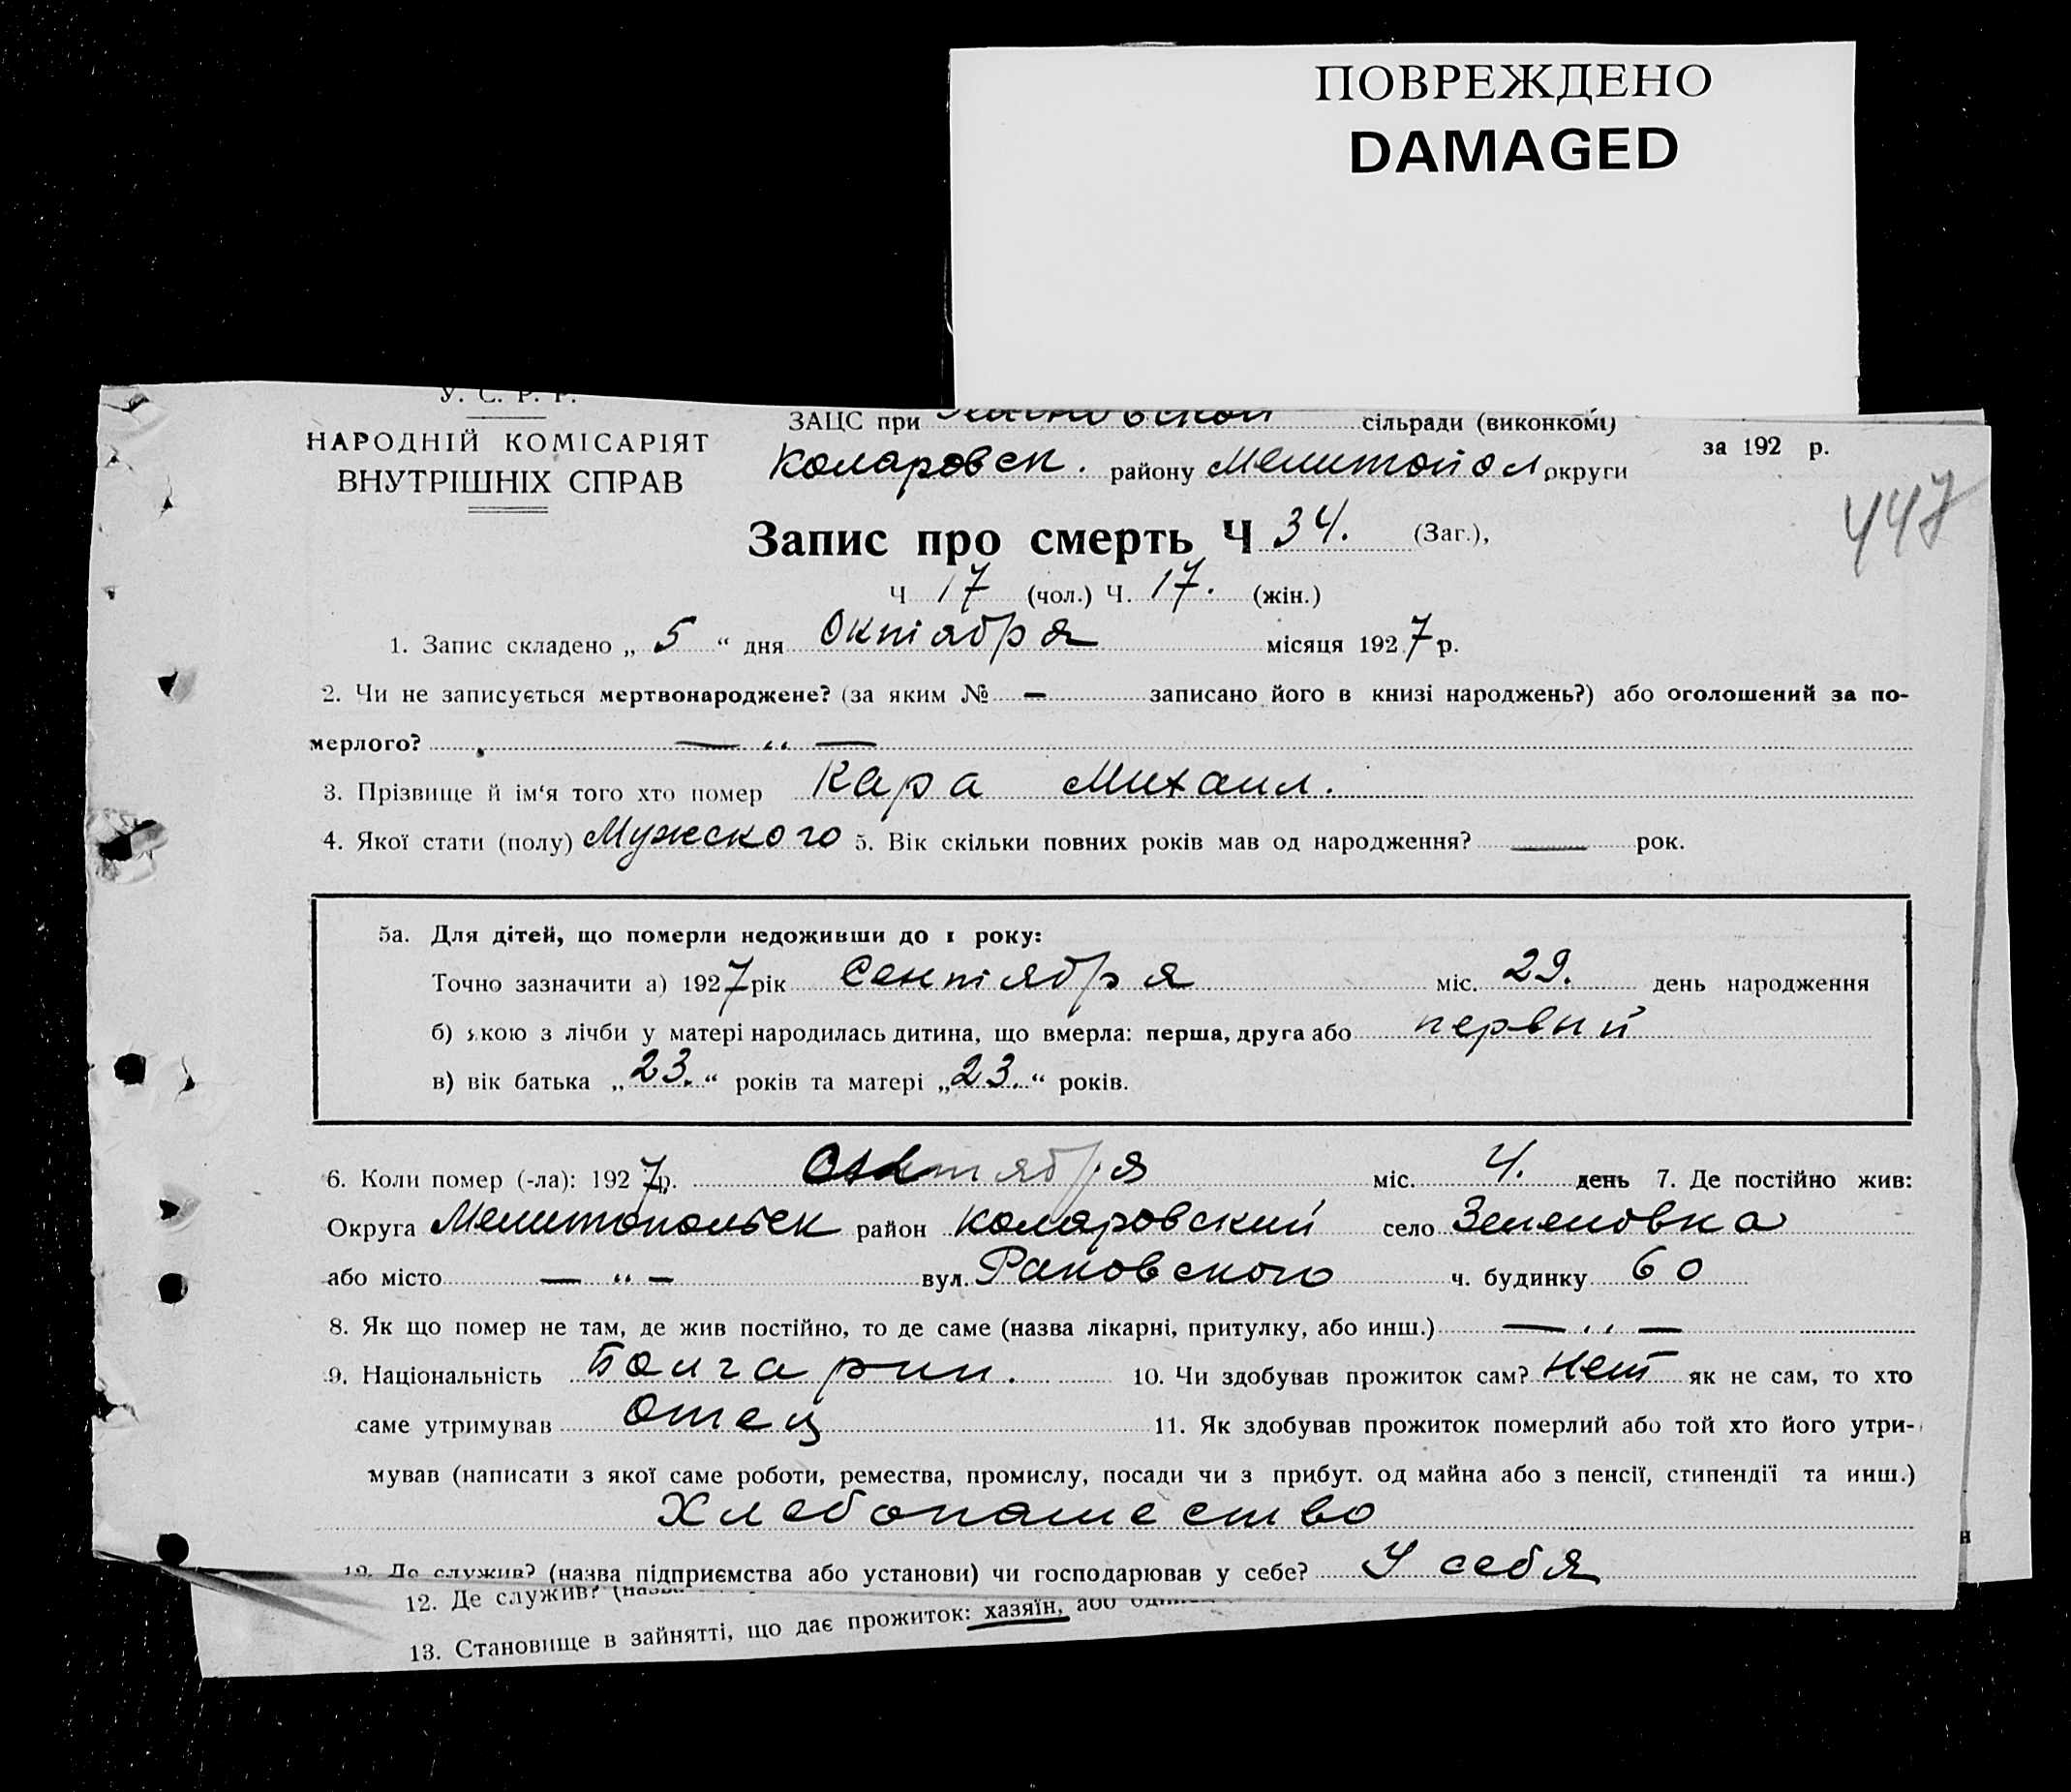 ПОВРЕЖДЕНО
DAMAGED
У. С. Р. Р.
НАРОДНІЙ КОМІСАРІЯТ
ВНУТРІШНІХ СПРАВ
ЗАЦС при сільради (виконкомі)
Коларовск. району Мелитопол округи
за 192 р.
447
Запис про смерть Ч 34. (Заг.),
Ч 17 (чол.) Ч. 17. (жін.)
1. Запис складено „ 5 “ дня Октября місяця 1927 р.
2. Чи не записується мертвонароджене? (за яким № — записано його в книзі народжень?) або оголошений за по-
мерлого? — “ —
3. Прізвище й ім‘я того хто помер Кара Михаил.
4. Якої стати (полу) Мужского 5. Вік скільки повних років мав од народження? — рок.
5а. Для дітей, що померли недоживши до 1 року:
Точно зазначити а) 1927 рік Сентября міс. 29. день народження
б) якою з лічби у матері народилась дитина, що вмерла: перша, друга або первый
в) вік батька „ 23. “ років та матері „ 23. “ років.
6. Коли помер (-ла): 1927 р. Октября міс. 4. день 7. Де постійно жив:
Округа Мелитопольск район Коларовский село Зеленовка
або місто — “ — вул. Раковского ч. будинку 60
8. Як що помер не там, де жив постійно, то де саме (назва лікарні, притулку, або инш.) — “ —
9. Національність Болгарин. 10. Чи здобував прожиток сам? Нет як не сам, то хто
саме утримував Отец 11. Як здобував прожиток померлий або той хто його утри-
мував (написати з якої саме роботи, ремества, промислу, посади чи з прибут. од майна або з пенсії, стипендії та инш.)
Хлебопашество
12. Де служив? (назва підприємства або установи) чи господарював у себе? У себя
12. Де служив? (назва
13. Становище в зайнятті, що дає прожиток: хазяїн, або